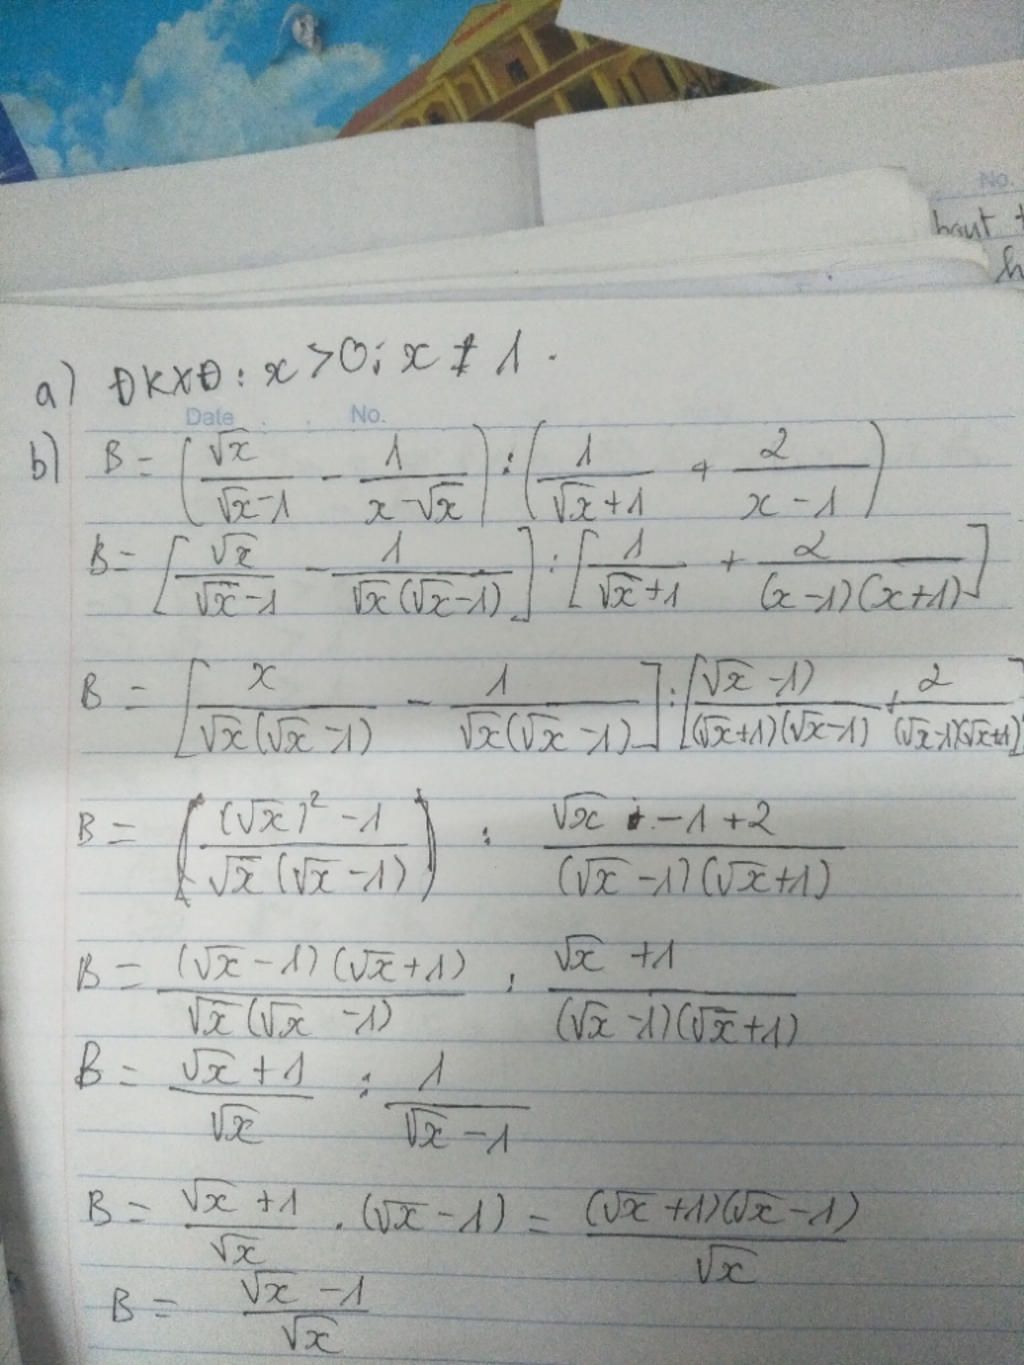 No.
haut
h
a) ĐKXĐ: x > 0; x ≠ 1.
Date No.
b) B = (√x/(√x-1) - 1/(x-√x)) : (1/(√x+1) + 2/(x-1))
B = [√x/(√x-1) - 1/(√x(√x-1))] : [1/(√x+1) + 2/((x-1)(x+1))]
B = [x/(√x(√x-1)) - 1/(√x(√x-1))] : [(√x-1)/((√x+1)(√x-1)) + 2/((√x-1)(√x+1))]
B = (((√x)²-1)/(√x(√x-1))) : (√x-1+2)/((√x-1)(√x+1))
B = ((√x-1)(√x+1))/(√x(√x-1)) : (√x+1)/((√x-1)(√x+1))
B = (√x+1)/√x : 1/(√x-1)
B = (√x+1)/√x . (√x-1) = ((√x+1)(√x-1))/√x
B = (√x-1)/√x